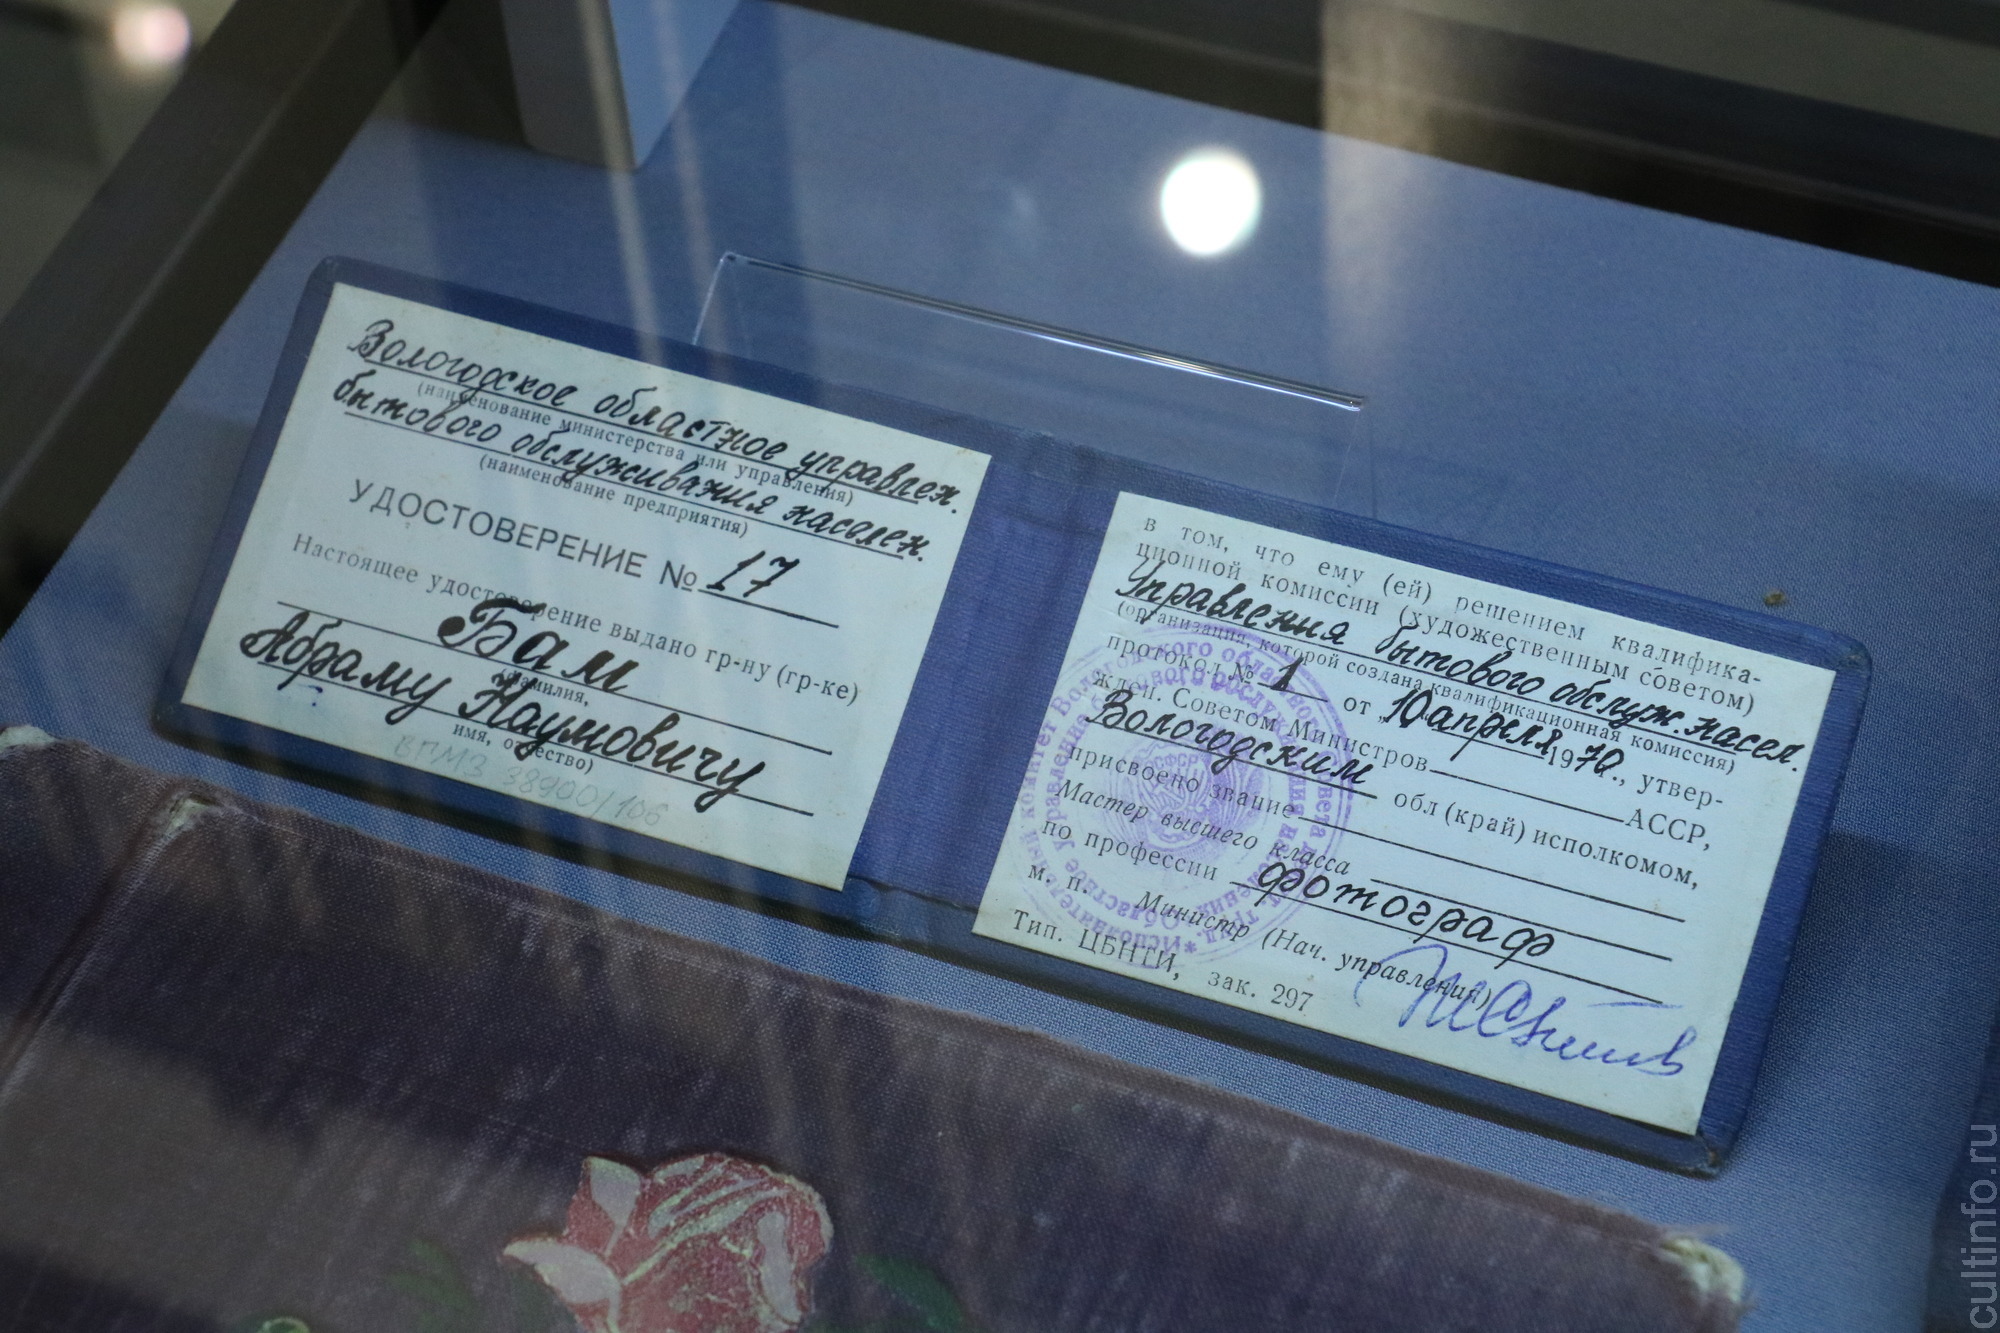 Вологодское областное управлен.
(наименование министерства или управления)
бытового обслуживания населен.
(наименование предприятия)
УДОСТОВЕРЕНИЕ № 17
Настоящее удостоверение выдано гр-ну (гр-ке)
Бам
(фамилия,
Абраму Наумовичу
имя, отчество)
ВГМЗ 38900/106
в том, что ему (ей) решением квалифика-
ционной комиссии (художественным советом)
Управления бытового обслуж. насел.
(организация, которой создана квалификационная комиссия)
протокол № 1 от 10 апреля 1970., утвер-
жден. Советом Министров АССР,
Вологодским обл (край) исполкомом,
присвоено звание
Мастер высшего класса
по профессии фотограф
м. п. Министр (Нач. управления)
Тип. ЦБНТИ, зак. 297
cultinfo.ru